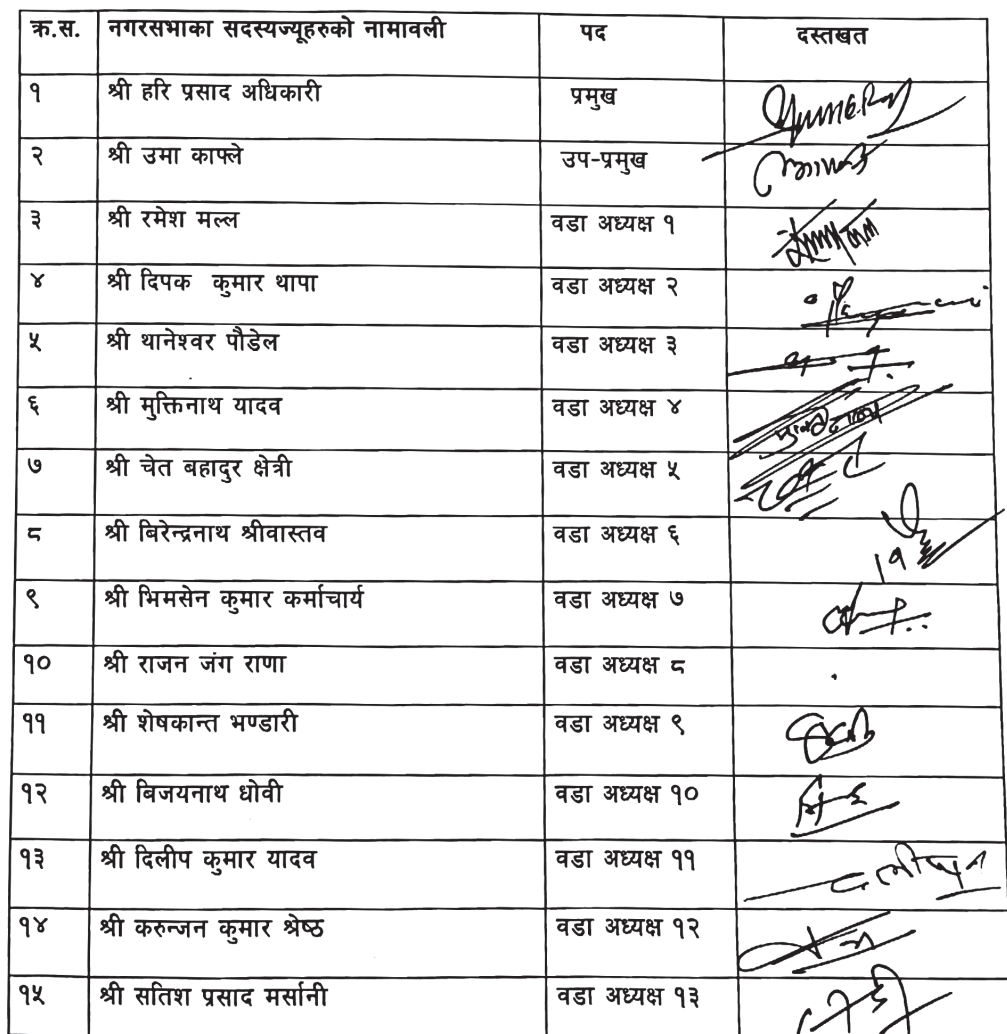 क्र.स. नगरसभाका सदस्यज्यूहरुको नामावली पद दस्तखत
१ श्री हरि प्रसाद अधिकारी प्रमुख
२ श्री उमा काफ्ले उप-प्रमुख
३ श्री रमेश मल्ल वडा अध्यक्ष १
४ श्री दिपक कुमार थापा वडा अध्यक्ष २
५ श्री थानेश्वर पौडेल वडा अध्यक्ष ३
६ श्री मुक्तिनाथ यादव वडा अध्यक्ष ४
७ श्री चेत बहादुर क्षेत्री वडा अध्यक्ष ५
८ श्री बिरेन्द्रनाथ श्रीवास्तव वडा अध्यक्ष ६
९ श्री भिमसेन कुमार कर्माचार्य वडा अध्यक्ष ७
१० श्री राजन जंग राणा वडा अध्यक्ष ८
११ श्री शेषकान्त भण्डारी वडा अध्यक्ष ९
१२ श्री बिजयनाथ धोवी वडा अध्यक्ष १०
१३ श्री दिलीप कुमार यादव वडा अध्यक्ष ११
१४ श्री करुन्जन कुमार श्रेष्ठ वडा अध्यक्ष १२
१५ श्री सतिश प्रसाद मर्सानी वडा अध्यक्ष १३